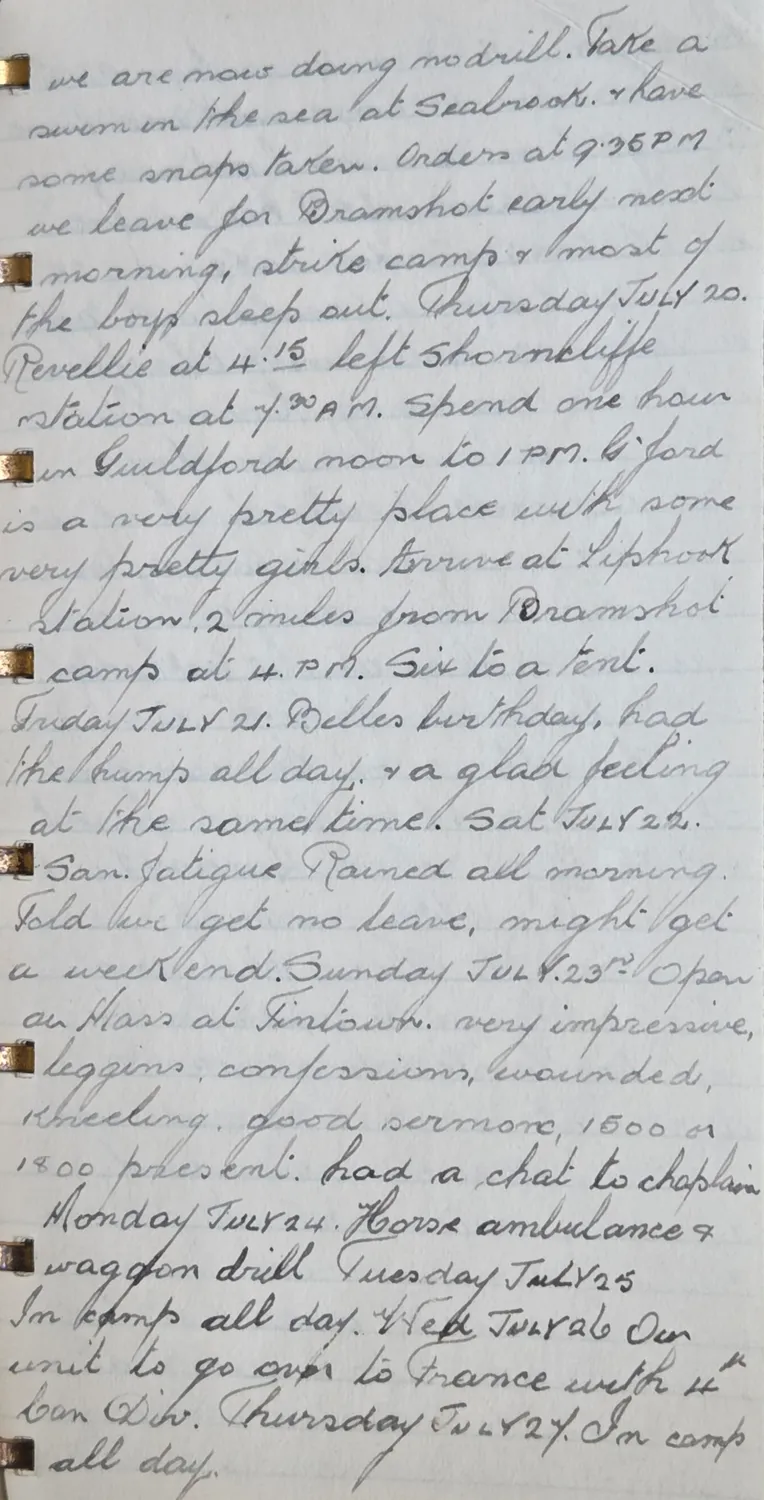 we are now doing no drill. Take a
swim in the sea at Seabrook. & have
some snaps taken. Orders at 9.35 PM
we leave for Bramshot early next
morning, strike camp & most of
the boys sleep out. Thursday JULY 20.
Revellie at 4.15 left Shorncliffe
station at 7.30 AM. Spend one hour
in Guildford noon to 1 PM. G'ford
is a very pretty place with some
very pretty girls. Arrive at Liphook
station, 2 miles from Bramshot
camp at 4. PM. Six to a tent.
Friday JULY 21. Belles birthday, had
the hump all day. & a glad feeling
at the same time. Sat JULY 22.
San. fatigue Rained all morning.
Told we get no leave, might get
a week end. Sunday JULY. 23rd Open
air Mass at Tintown. very impressive,
leggins, confessions, wounded,
kneeling. good sermon, 1500 or
1800 present. had a chat to chaplain
Monday JULY 24. Horse ambulance &
waggon drill Tuesday JULY 25
In camp all day. Wed JULY 26 Our
unit to go over to France with 4th
Can Div. Thursday JULY 27. In camp
all day.